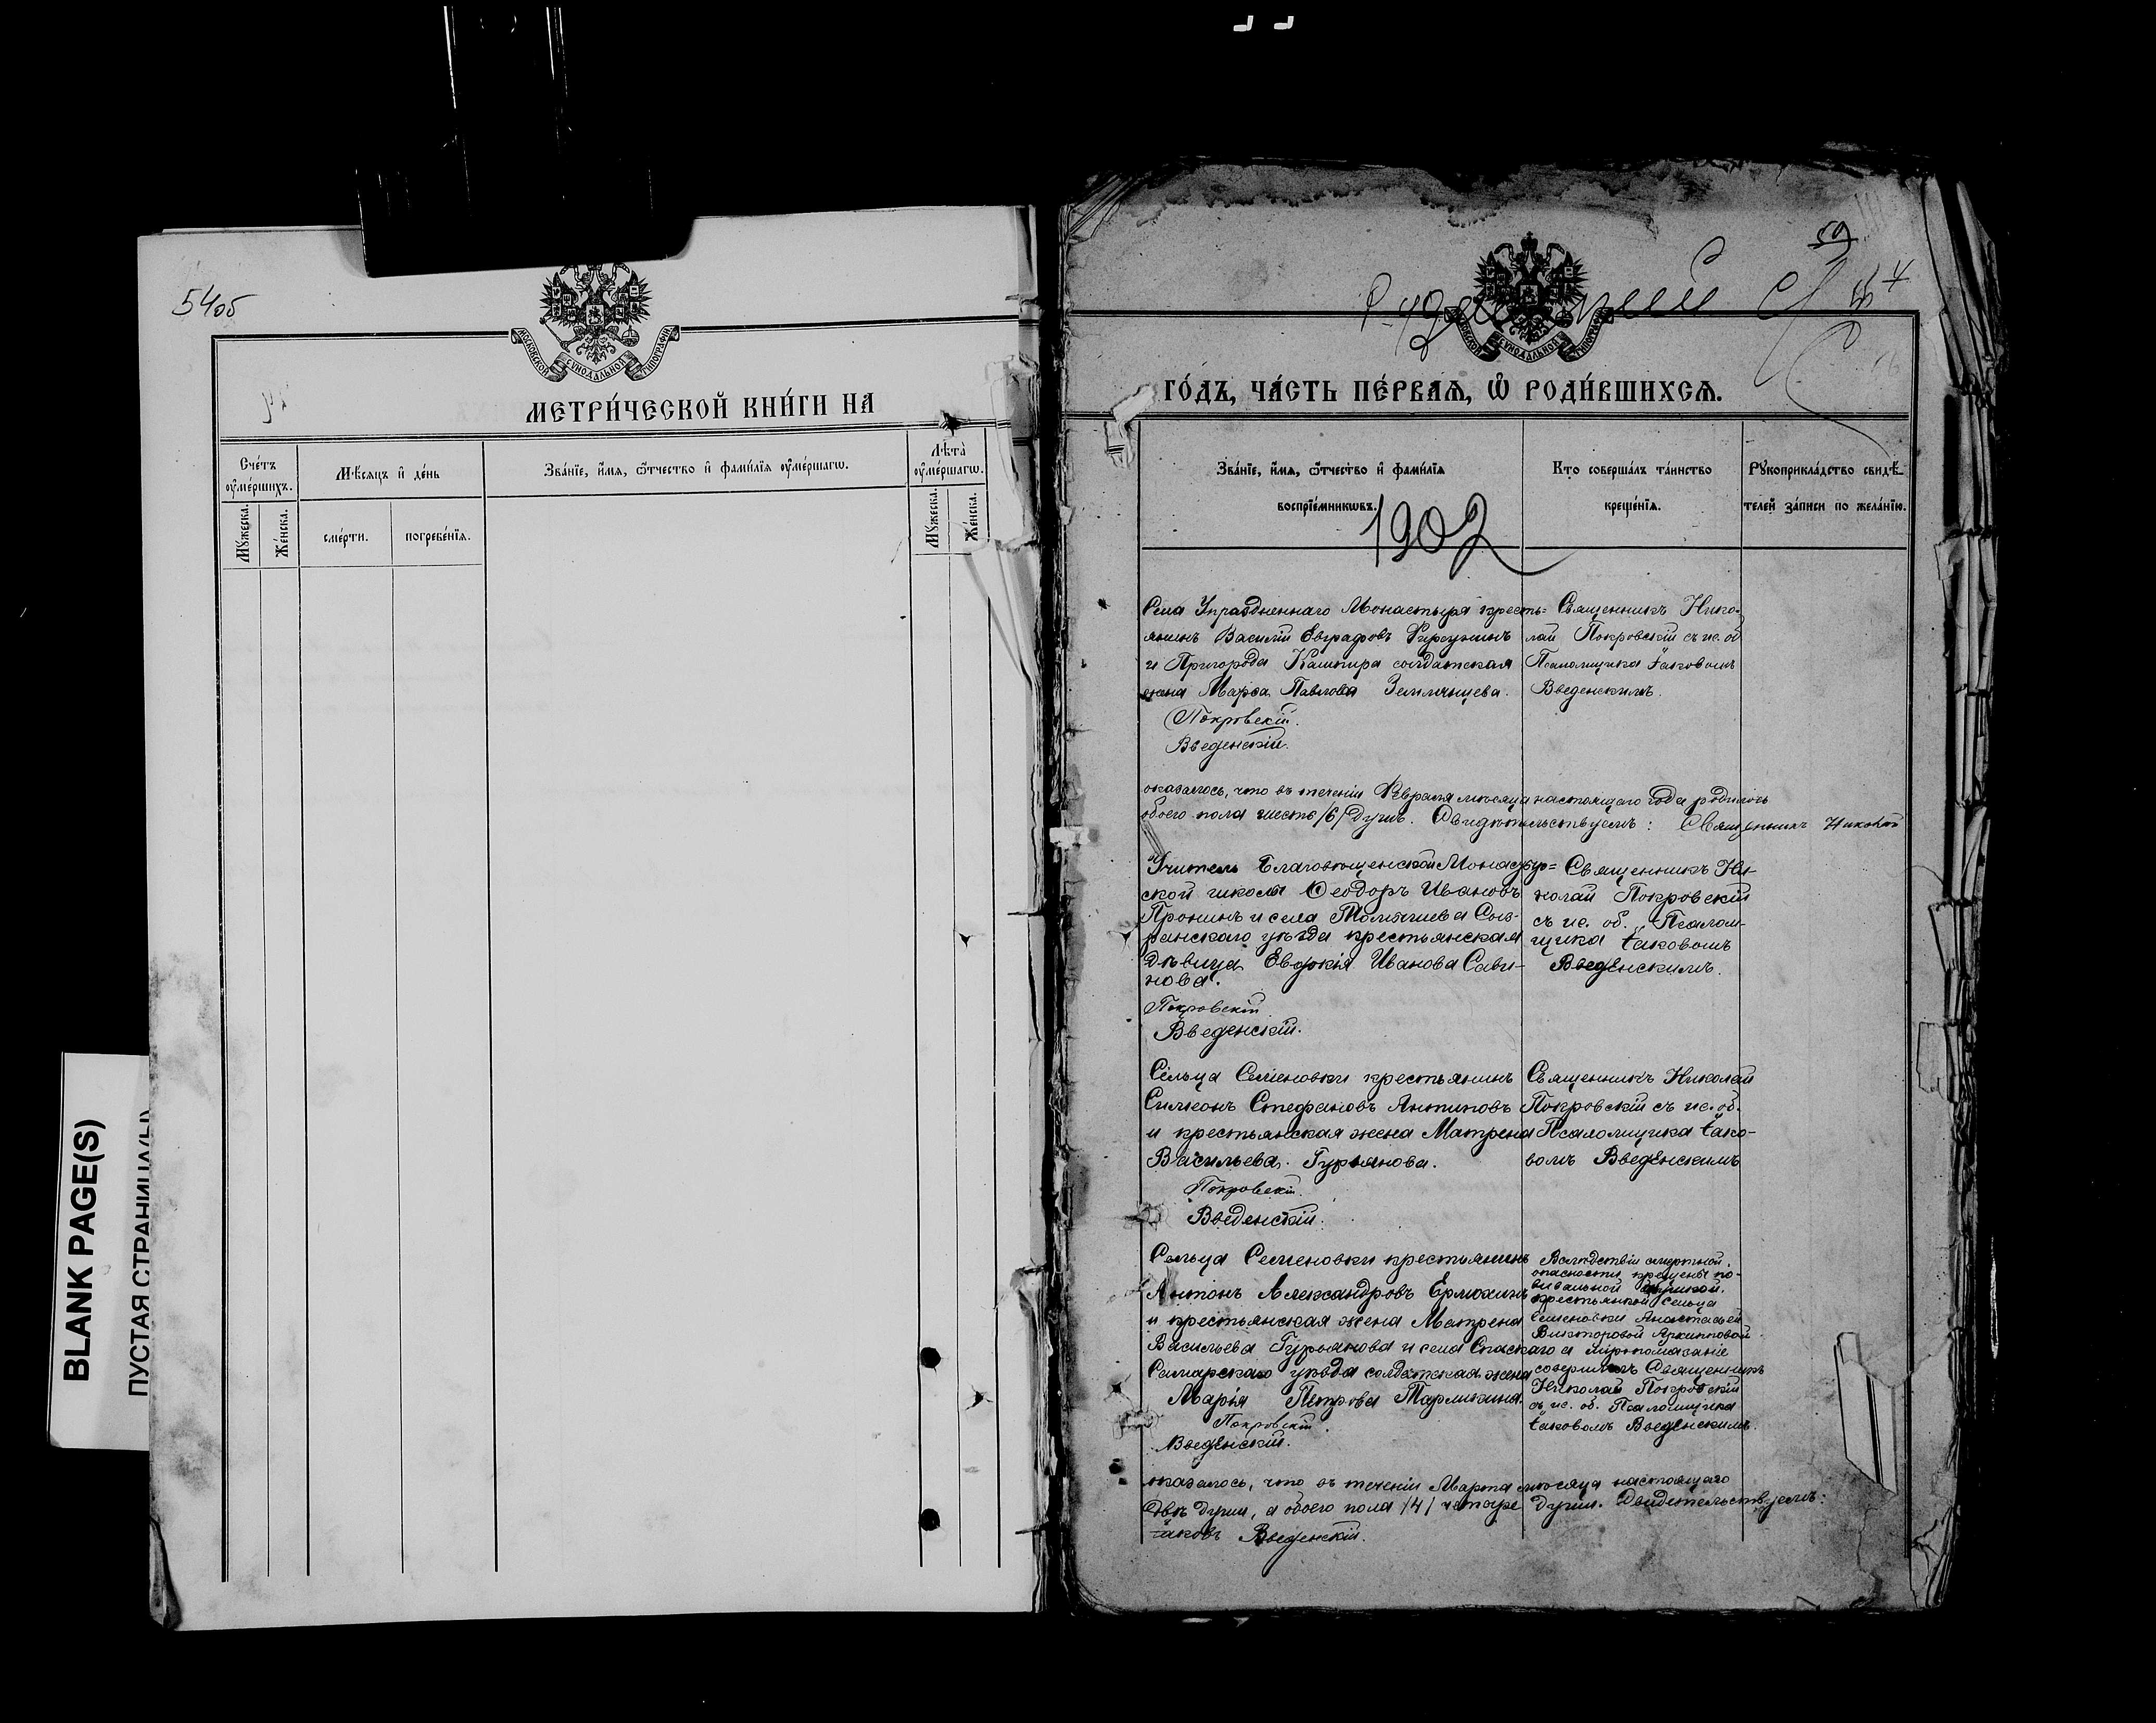 54об
МОСКОВСКОЙ СѴНОДАЛЬНОЙ ТИПОГРАФІИ
МЕТРИ́ЧЕСКОЙ КНИ́ГИ НА
Сче́тъ оу҆ме́ршихъ.
Мꙋ́жеска.
Же́нска.
Мѣ́сяцъ и҆ де́нь
сме́рти.
погребе́нїя.
Зва́нїе, и҆́мя, ѻ҆́тчество и҆ фами́лїя оу҆ме́ршагѡ.
Лѣ́та оу҆ме́ршагѡ.
Мꙋ́жеска.
Же́нска.
BLANK PAGE(S)
ПУСТАЯ СТРАНИЦА(Ы)
59
МОСКОВСКОЙ СѴНОДАЛЬНОЙ ТИПОГРАФІИ
ГО́ДЪ, ЧА́СТЬ ПЕ́РВАѦ, Ѡ҆ РОДИ́ВШИХСѦ.
Зва́нїе, и҆́мя, ѻ҆́тчество и҆ фами́лїя
воспрїе́мникѡвъ.
Кто̀ соверша́лъ та́инство
креще́нїя.
Рꙋкоприкла́дство свидѣ́-
телей за́писи по жела́нїю.
1902
Села Упраздненнаго Монастыря кресть=
янинъ Василій Евграфовъ
и Пригорода Кашпира солдатская
жена Марѳа Павлова
Покровскій.
Введенскій.
Священникъ Нико-
лай Покровскій съ ис. об
Псаломщика Іаковомъ
Введенскимъ.
оказалось, что въ теченіи Февраля мѣсяца настоящаго года родилось
обоего пола шесть /6/ душъ. Свидѣтельствуемъ: Священникъ Николай
Учитель Благовѣщенской Монастыр=
ской школы Ѳеодоръ Ивановъ
Пронинъ и села Томышева Сыз-
ранскаго уѣзда крестьянская
дѣвица Евдокія Иванова Сави-
нова.
Покровскій
Введенскій.
Священникъ Ни-
колай Покровскій
съ ис. об. Псалом-
щика Іаковомъ
Введенскимъ.
Сельца Семеновки крестьянинъ
Симеонъ Стефановъ Антиповъ
и крестьянская жена Матрена
Васильева Гурьянова.
Покровскій.
Введенскій.
Священникъ Николай
Покровскій съ ис. об.
Псаломщика Іако-
вомъ Введенскимъ
Сельца Семеновки крестьянинъ
Антонъ Александровъ Ермохинъ
и крестьянская жена Матрена
Васильева Гурьянова и села Спаскаго
Самарскаго уѣзда солдатская жена
Марья Петрова
Покровскій
Введенскій.
Вслѣдствіи смертной
опасности крещенъ по-
вивальной бабушкой,
крестьянкой сельца
Семеновки Анастасьей
Викторовой Архиповой
а мѵропомазаніе
совершилъ Священникъ
Николай Покровскій
съ ис. об. Псаломщика
Іаковомъ Введенскимъ.
оказалось, что въ теченіи Марта мѣсяца настоящаго
двѣ души, а обоего пола /4/ четыре души. Свидетельствуемъ:
Іаковъ Введенскій.